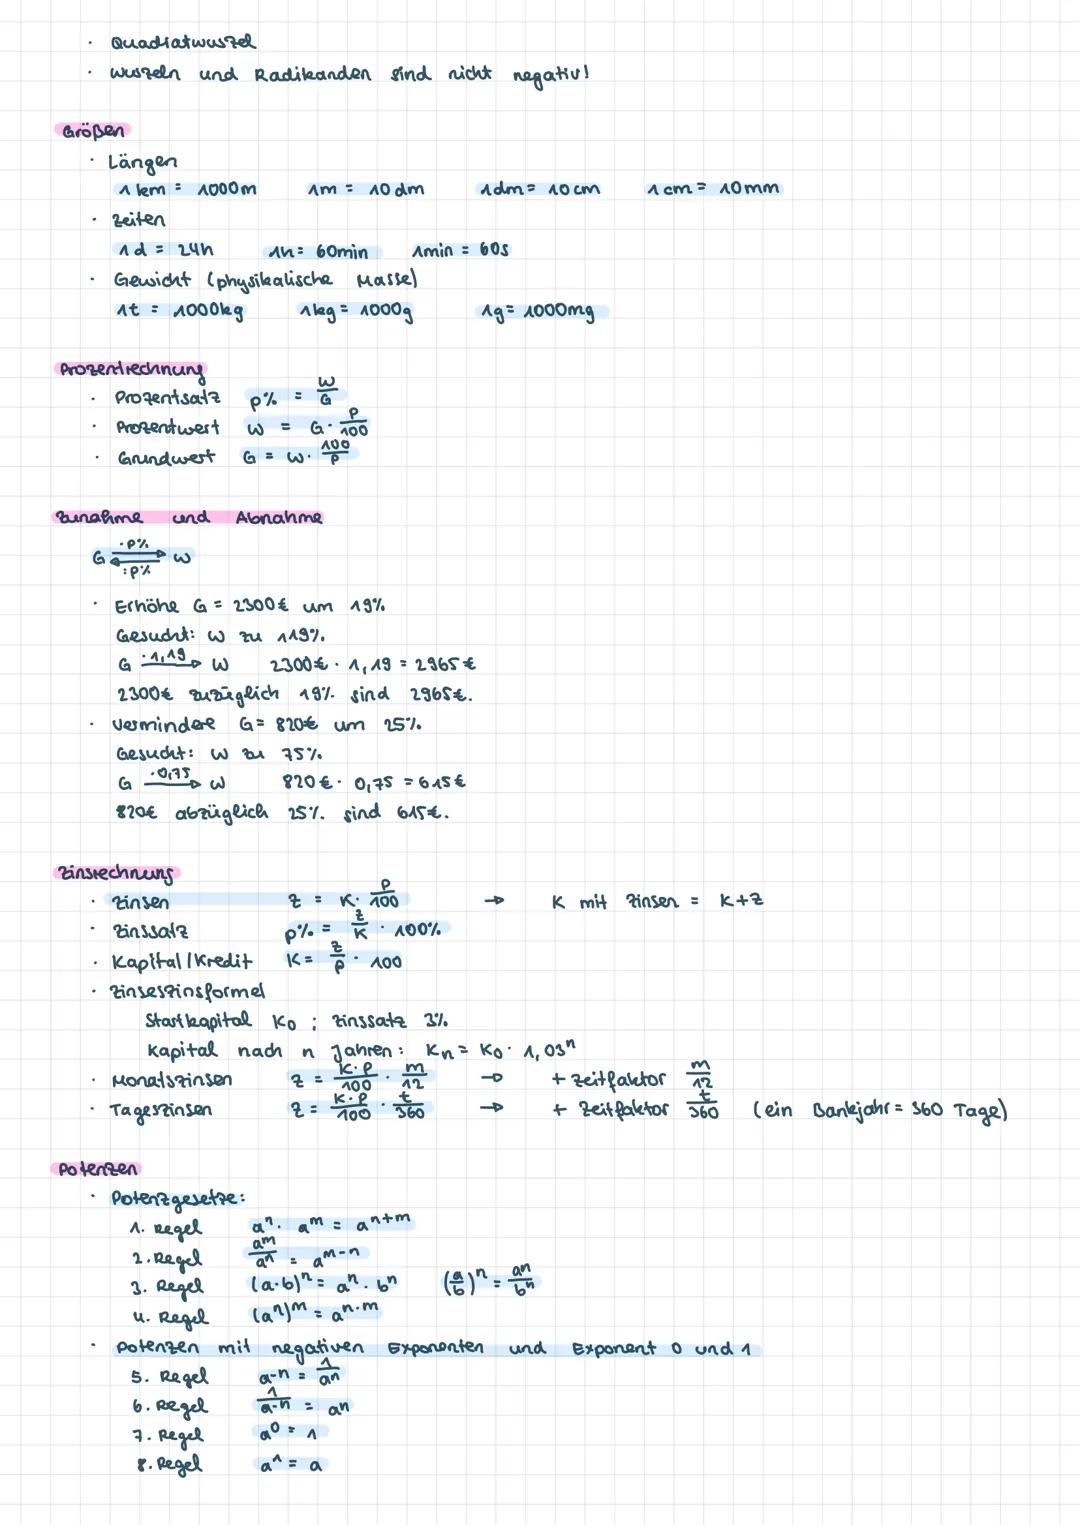 · Quadratwurzel
· Wurzeln und Radikanden sind nicht negativ!
Größen
· Längen
1 km = 1000 m 1 m = 10 dm 1 dm = 10 cm 1 cm = 10 mm
· Zeiten
1 d = 24h 1h = 60min 1min = 60s
· Gewicht (physikalische Masse)
1t = 1000kg 1kg = 1000g 1g = 1000mg
Prozentrechnung
· Prozentsatz p% = W/G
· Prozentwert W = G · p/100
· Grundwert G = W · 100/p
Zunahme und Abnahme
·p%
G ⇄ W
:p%
· Erhöhe G = 2300€ um 19%
Gesucht: W zu 119%
G —·1,19→ W 2300€ · 1,19 = 2965€
2300€ zuzüglich 19% sind 2965€.
· Vermindere G = 820€ um 25%.
Gesucht: W zu 75%
G —·0,75→ W 820€ · 0,75 = 615€
820€ abzüglich 25% sind 615€.
Zinsrechnung
· Zinsen Z = K · p/100 → K mit Zinsen = K+Z
· Zinssatz p% = Z/K · 100%
· Kapital/Kredit K = Z/p · 100
· Zinseszinsformel
Startkapital K₀ ; Zinssatz 3%
Kapital nach n Jahren: Kₙ = K₀ · 1,03ⁿ
· Monatszinsen Z = K·p/100 · m/12 → + Zeitfaktor m/12
· Tageszinsen Z = K·p/100 · t/360 → + Zeitfaktor t/360 (ein Bankjahr = 360 Tage)
Potenzen
· Potenzgesetze:
1. Regel aⁿ · aᵐ = aⁿ⁺ᵐ
2. Regel aᵐ/aⁿ = aᵐ⁻ⁿ
3. Regel (a·b)ⁿ = aⁿ · bⁿ (a/b)ⁿ = aⁿ/bⁿ
4. Regel (aⁿ)ᵐ = aⁿ·ᵐ
· Potenzen mit negativen Exponenten und Exponent 0 und 1
5. Regel a⁻ⁿ = 1/aⁿ
6. Regel 1/a⁻ⁿ = aⁿ
7. Regel a⁰ = 1
8. Regel a¹ = a